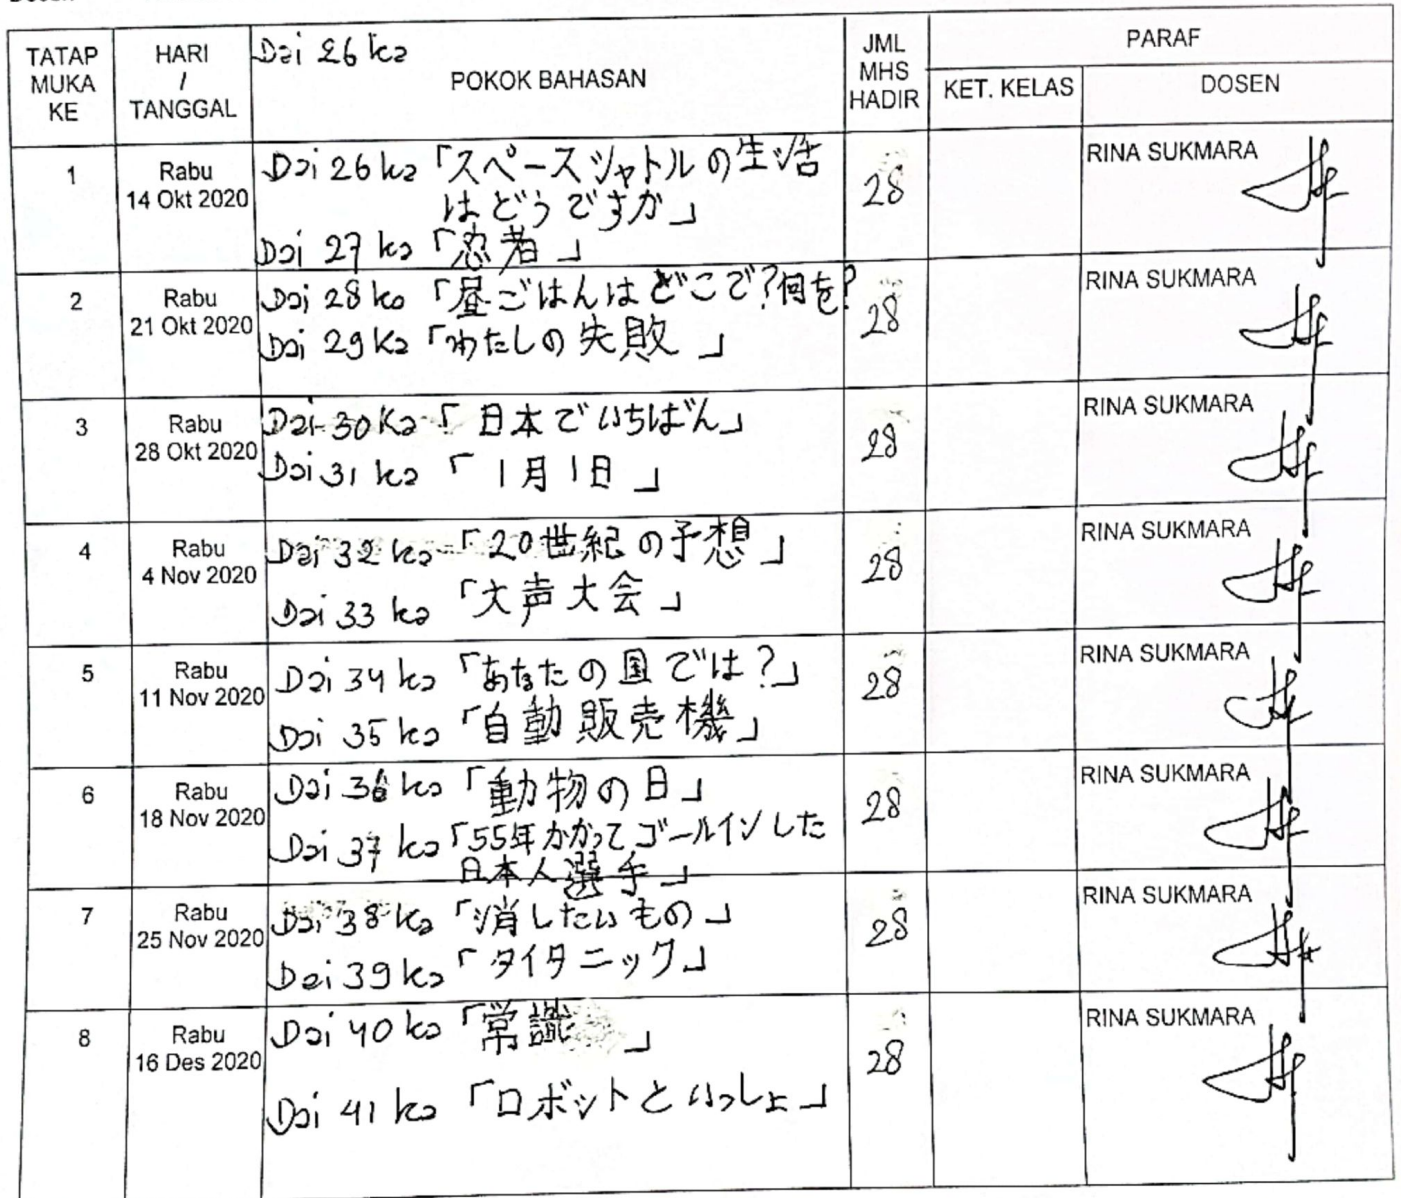 TATAP MUKA KE
HARI / TANGGAL
Dai 26 ka
POKOK BAHASAN
JML MHS HADIR
PARAF
KET. KELAS
DOSEN
1
Rabu
14 Okt 2020
Dai 26 ka「スペースシャトルの生活
はどうですか」
Dai 27 ka「忍者」
28
RINA SUKMARA
2
Rabu
21 Okt 2020
Dai 28 ka「昼ごはんはどこで?何を?
Dai 29 ka「わたしの失敗」
28
RINA SUKMARA
3
Rabu
28 Okt 2020
Dai 30 ka「日本でいちばん」
Dai 31 ka「1月1日」
28
RINA SUKMARA
4
Rabu
4 Nov 2020
Dai 32 ka「20世紀の予想」
Dai 33 ka「大声大会」
28
RINA SUKMARA
5
Rabu
11 Nov 2020
Dai 34 ka「あなたの国では?」
Dai 35 ka「自動販売機」
28
RINA SUKMARA
6
Rabu
18 Nov 2020
Dai 36 ka「動物の日」
Dai 37 ka「55年かかってゴールインした
日本人選手」
28
RINA SUKMARA
7
Rabu
25 Nov 2020
Dai 38 ka「消したいもの」
Dai 39 ka「タイタニック」
28
RINA SUKMARA
8
Rabu
16 Des 2020
Dai 40 ka「常識」
Dai 41 ka「ロボットといっしょ」
28
RINA SUKMARA